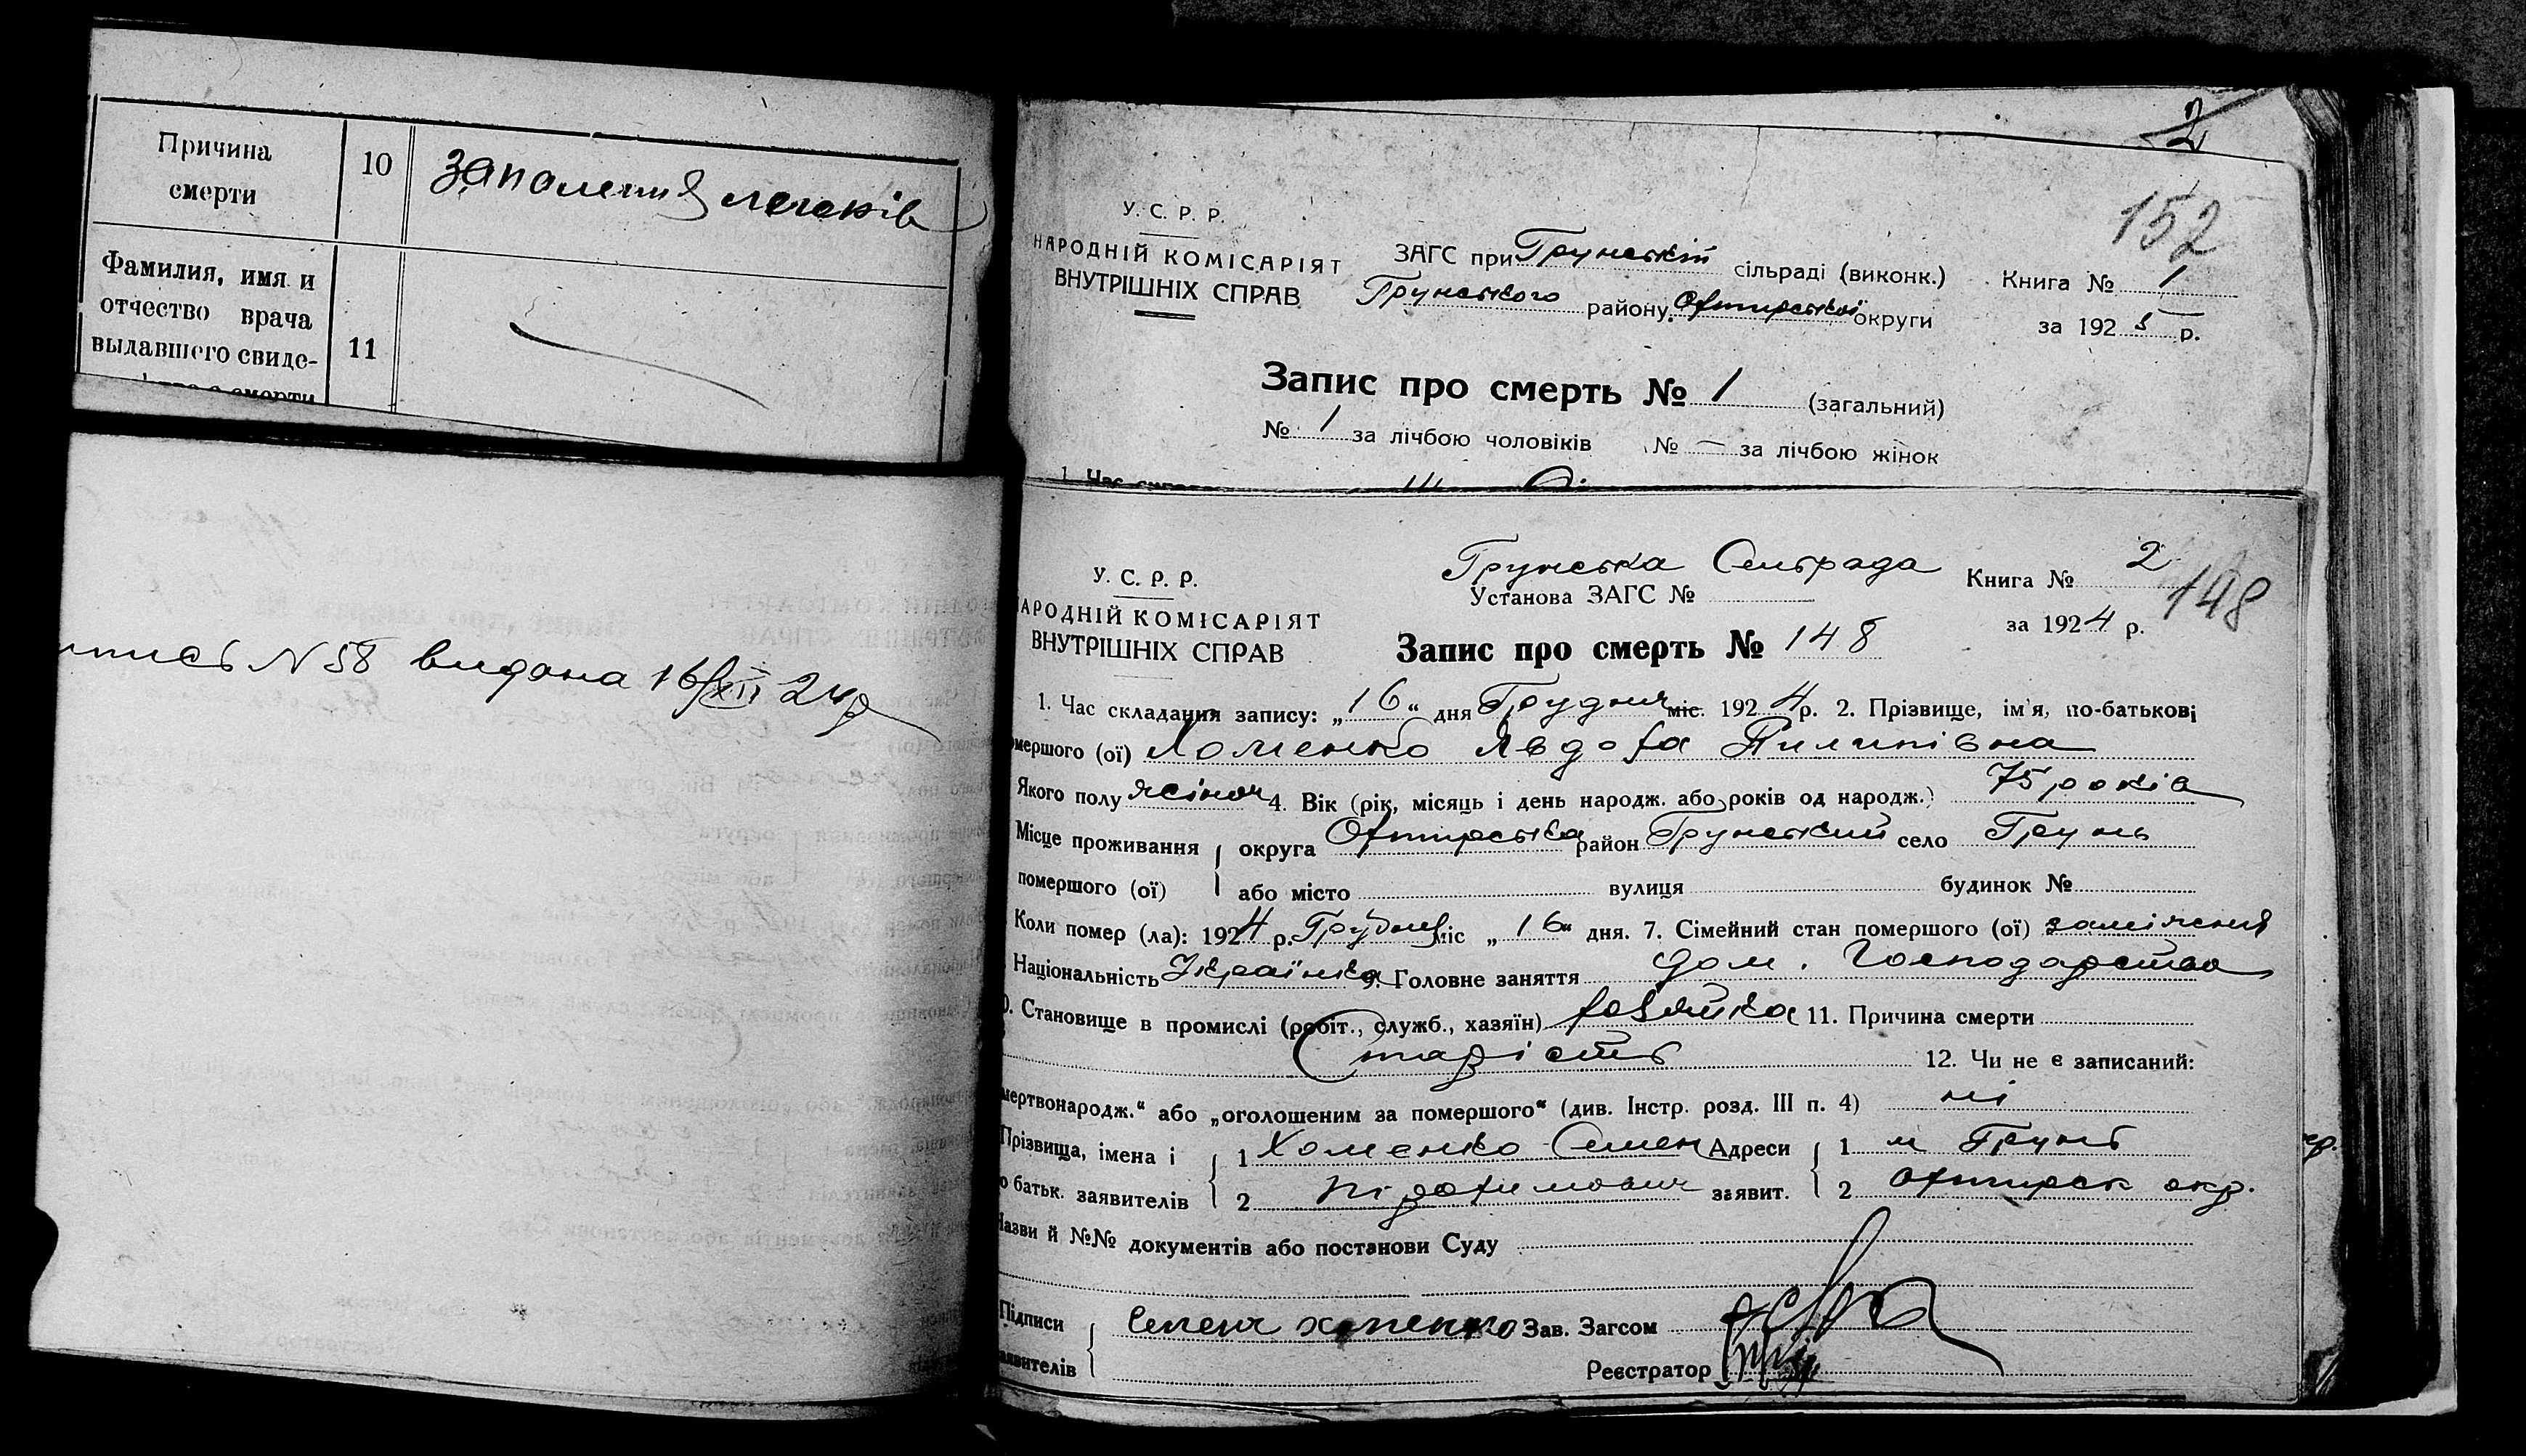 Причина
смерти
10
запалення легенів
Фамилия, имя и
отчество врача
выдавшего свиде-
11
2
152
У. С. Р. Р.
НАРОДНІЙ КОМІСАРІЯТ
ВНУТРІШНІХ СПРАВ
ЗАГС при Грунській сільраді (виконк.)
Грунського району Охтирської округи
Книга № 1
за 1925 р.
Запис про смерть № 1 (загальний)
№ 1 за лічбою чоловіків № — за лічбою жінок
N 58 видана 16/XII 24 р
У. С. Р. Р.
НАРОДНІЙ КОМІСАРІЯТ
ВНУТРІШНІХ СПРАВ
Грунська Сельрада
Установа ЗАГС №
Книга № 2
148
за 1924 р.
Запис про смерть № 148
1. Час складання запису: „16“ дня Грудня міс. 1924 р. 2. Прізвище, ім'я, по-батькові
помершого (ої) Хоменко Явдоха Пилипівна
Якого полу жіноч 4. Вік (рік, місяць і день народж. або років од народж.) 75 років
Місце проживання округа Охтирська район Грунський село Грунь
помершого (ої) або місто вулиця будинок №
Коли помер (ла): 1924 р. Грудня міс „16“ дня. 7. Сімейний стан помершого (ої) заміжня
Національність Українка 9. Головне заняття дом. Господарство
10. Становище в промислі (робіт., служб., хазяїн) хазяйка 11. Причина смерти
Старість 12. Чи не є записаний:
мертвонародж.“ або „оголошеним за помершого“ (див. Інстр. розд. III п. 4) ні
Прізвища, імена і 1 Хоменко Семен Адреси 1 м Грунь
по батьк. заявителів 2 заявит. 2 Охтирск окр.
Назви й №№ документів або постанови Суду
Підписи Семен Хоменко Зав. Загсом
заявителів Реєстратор